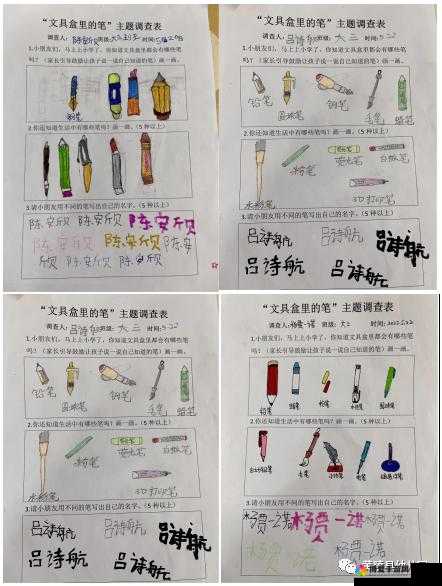 "文具盒里的笔"主题调查表
调查人:陈安欣 班级:大三班 时间:5月29日
1.小朋友们,马上上小学了,你知道文具盒里都会有哪些笔
吗?(家长引导鼓励让孩子说一说自己知道的笔)画一画。
钢笔
2.你还知道生活中有哪些笔吗?画一画。(5种以上)
3.请小朋友用不同的笔写出自己的名字。(5种以上)
陈安欣 陈安欣 陈安欣
陈安欣 陈安欣 陈安
陈安欣 陈安欣
"文具盒里的笔"主题调查表
调查人:吕诗航 班级:大三 时间:5.22
1.小朋友们,马上上小学了,你知道文具盒里都会有哪些笔
吗?(家长引导鼓励让孩子说一说自己知道的笔)画一画。
铅笔 圆珠笔 钢笔 毛笔 蜡笔
2.你还知道生活中有哪些笔吗?画一画。(5种以上)
水彩笔 粉笔 荧光笔 白板笔
3D打印笔
3.请小朋友用不同的笔写出自己的名字。(5种以上)
吕诗航 吕诗航 吕诗航
吕诗航 吕诗航
"文具盒里的笔"主题调查表
调查人:吕诗航 大三 时间:5.22
1.小朋友们,马上上小学了,你知道文具盒里都会有哪些笔
吗?(家长引导鼓励让孩子说一说自己知道的笔)画一画。
铅笔 圆珠笔 钢笔 毛笔 蜡笔
2.你还知道生活中有哪些笔吗?画一画。(5种以上)
水彩笔 粉笔 荧光笔 白板笔
3D打印笔
3.请小朋友用不同的笔写出自己的名字。(5种以上)
吕诗航 吕诗航 吕诗航
吕诗航 吕诗航
"文具盒里的笔"主题调查表
调查人:杨贾一诺 班级:大三 时间:2022.5.22
1.小朋友们,马上上小学了,你知道文具盒里都会有哪些笔
吗?(家长引导鼓励让孩子说一说自己知道的笔)画一画。
铅笔
2.你还知道生活中有哪些笔吗?画一画。(5种以上)
毛笔
3.请小朋友用不同的笔写出自己的名字。(5种以上)
杨贾一诺 杨贾一诺 杨贾一诺
杨贾一诺 杨贾一诺